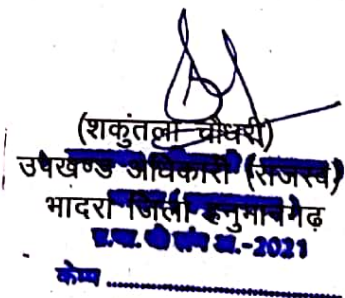 (शकुंतला चौधरी)
उपखण्ड अधिकारी (राजस्व)
भादरा जिला हनुमानगढ़
-2021
केम्प ........................